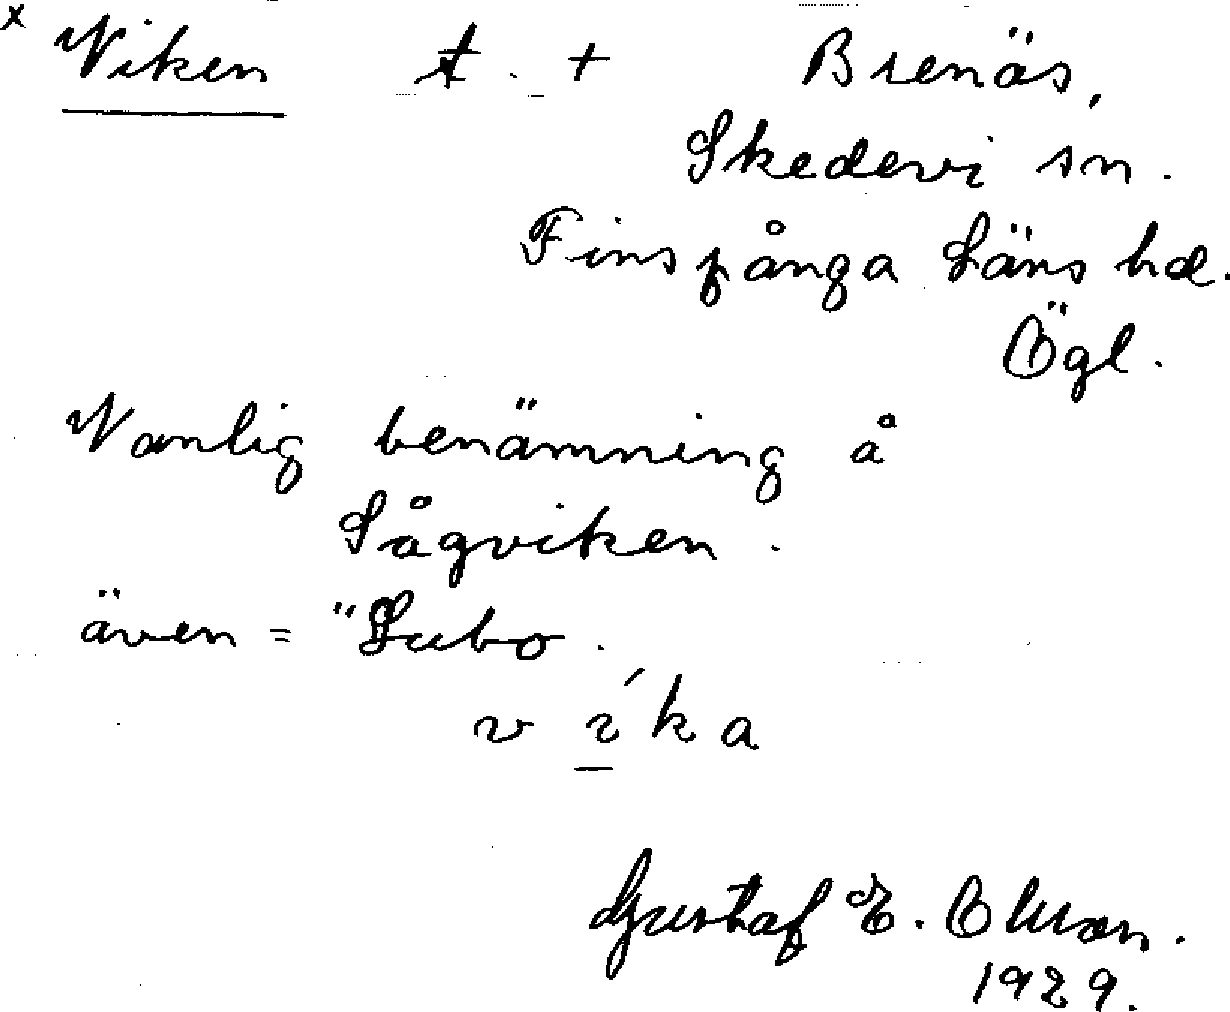 x Viken t. + Brenäs,
Skedevi sn.
Finspånga Läns hd.
Ögl.
Vanlig benämning å
Sågviken.
även = "Lubo.
víka
Gustaf E. Olsson.
1929.